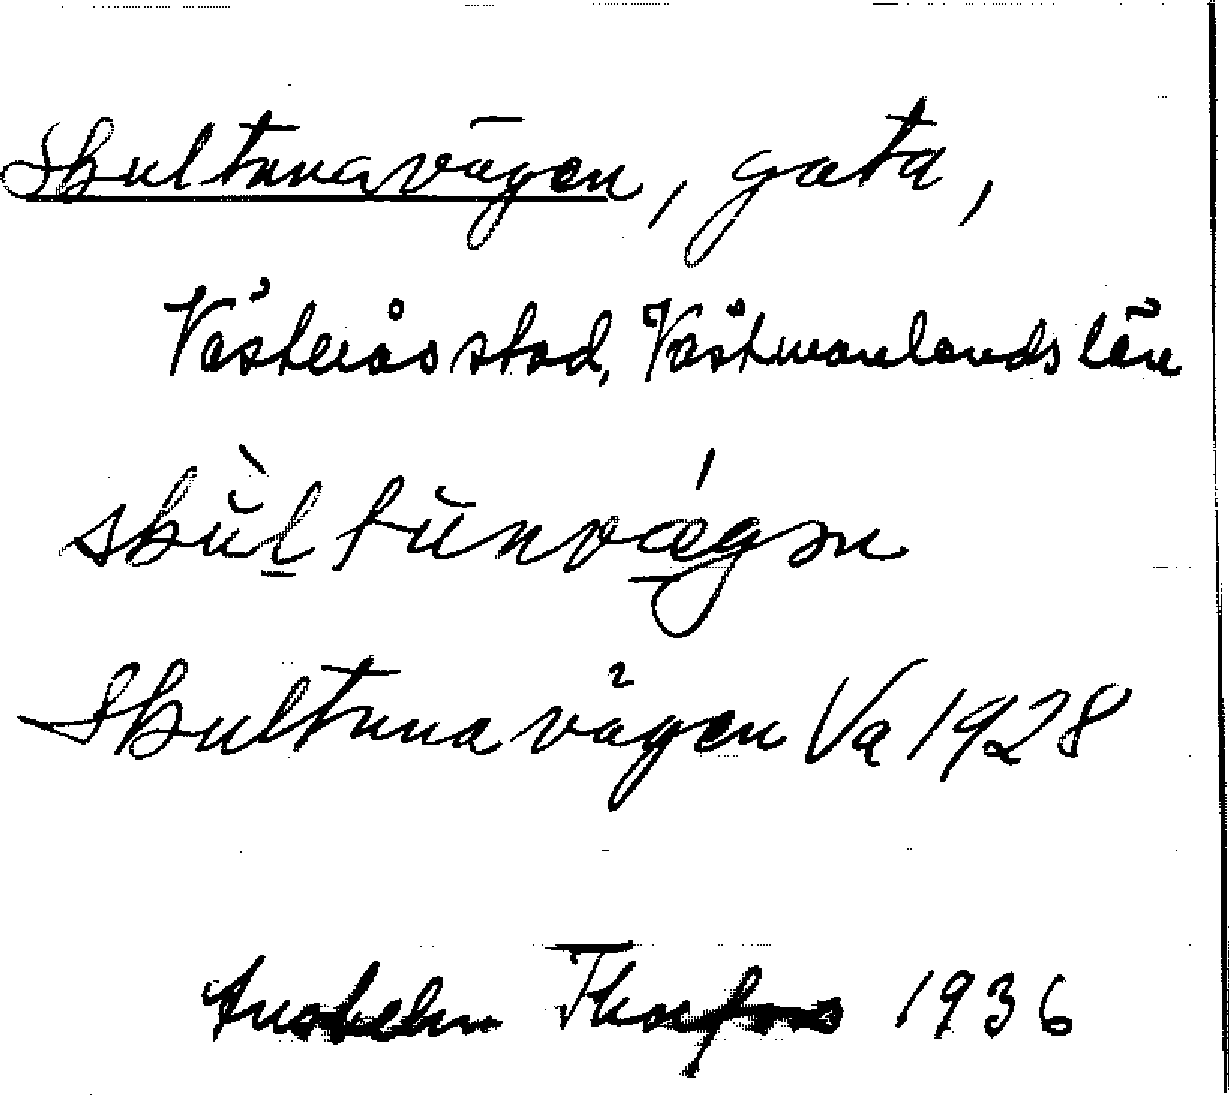 Skultunavägen, gata,
Västerås stad, Västmanlands län
skùltunvǽgən
Skultunavägen Va 1928
1936